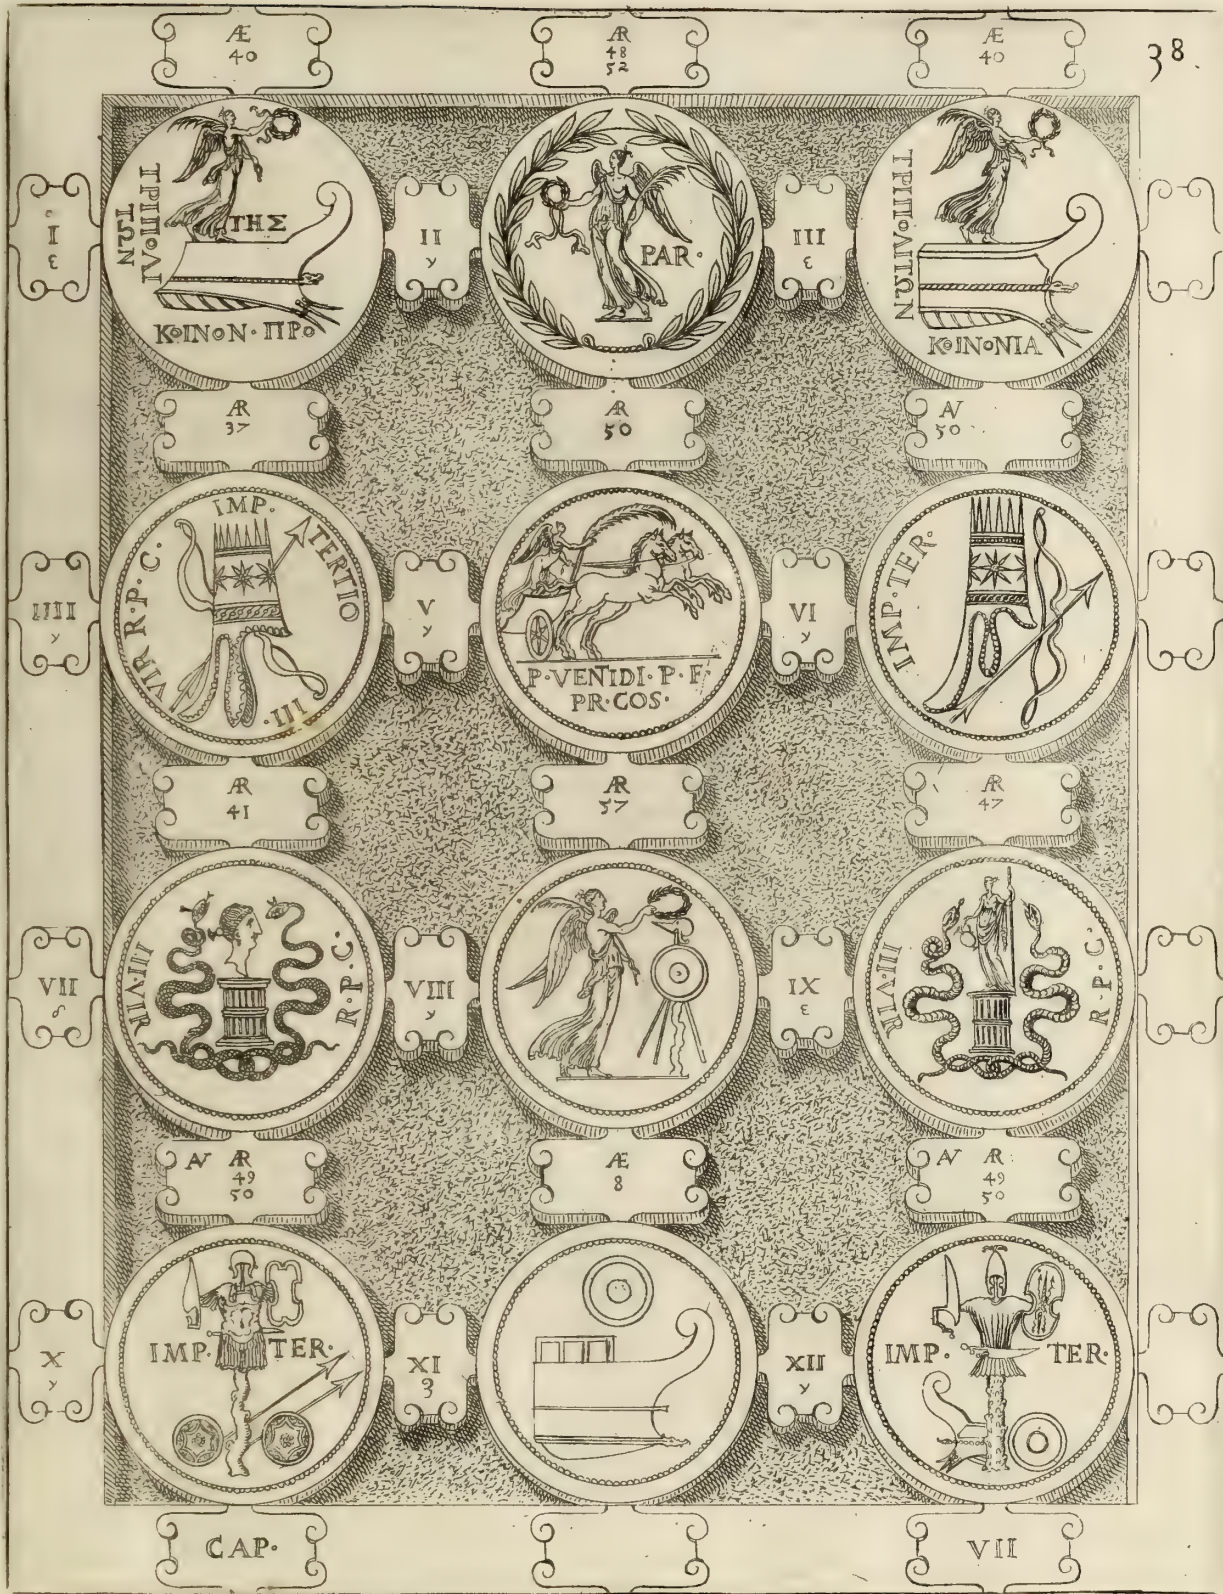 Æ
40
ÆR
48
52
Æ
40
38.
I
ε
ΤΡΙΠΟΛΙ
ΤΩΝ
ΤΗΣ
ΚΟΙΝΟΝ · ΠΡΟ
II
γ
PAR ·
III
ε
ΤΡΙΠΟΛΙΤΩΝ
ΚΟΙΝΟΝΙΑ
ÆR
37
ÆR
50
AV
50
IIII
γ
III · VIR R · P · C · IMP · TERTIO
V
γ
P · VENTIDI · P · F ·
PR · COS ·
VI
γ
IMP · TER ·
ÆR
41
ÆR
57
ÆR
47
VII
RIA · III
R · P · C ·
VIII
γ
IX
ε
RIA · III
R · P · C ·
AV ÆR
49
50
Æ
8
AV ÆR
49
50
X
γ
IMP · TER ·
XI
XII
γ
IMP · TER ·
CAP ·
VII